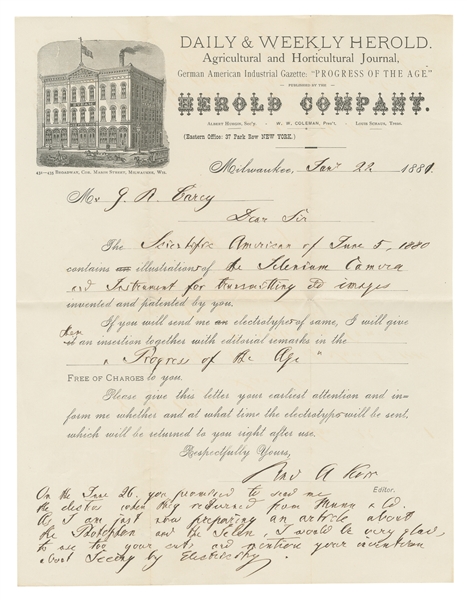 DAILY & WEEKLY HEROLD.
Agricultural and Horticultural Journal,
German American Industrial Gazette: "PROGRESS OF THE AGE"
PUBLISHED BY THE
HEROLD COMPANY.
W. W. COLEMAN, Pres't.
(Eastern Office: 37 Park Row NEW YORK.)
BROADWAY, COR. MASON STREET, MILWAUKEE, WIS.
Milwaukee, Jan' 22 1881.
Mr J. R. Carey
Dear Sir
The Scientific American of June 5, 1880
contains an illustrations of the Selenium Camera
and Instrument for transmitting images
invented and patented by you.
If you will send me an electrotypes of same, I will give
an insertion together with editorial remarks in the
"Progress of the Age"
FREE OF CHARGES to you.
Please give this letter your earliest attention and in-
form me whether and at what time the electrotype will be sent,
which will be returned to you right after use.
Respectfully Yours,
Editor.
On the June 26. you promised to send me
the electros when they returned from Munn & Co.
As I am just now preparing an article about
the Photophon and the Selen, I would be very glad,
to use too your cuts and mention your invention
about Seeing by Electricity.